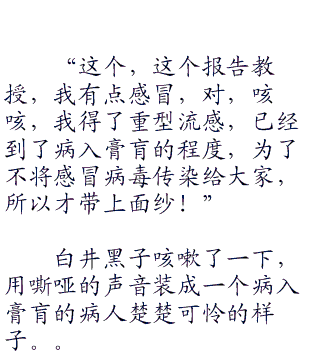 “这个，这个报告教
授，我有点感冒，对，咳
咳，我得了重型流感，已经
到了病入膏肓的程度，为了
不将感冒病毒传染给大家，
所以才带上面纱！”
白井黑子咳嗽了一下，
用嘶哑的声音装成一个病入
膏肓的病人楚楚可怜的样
子。。